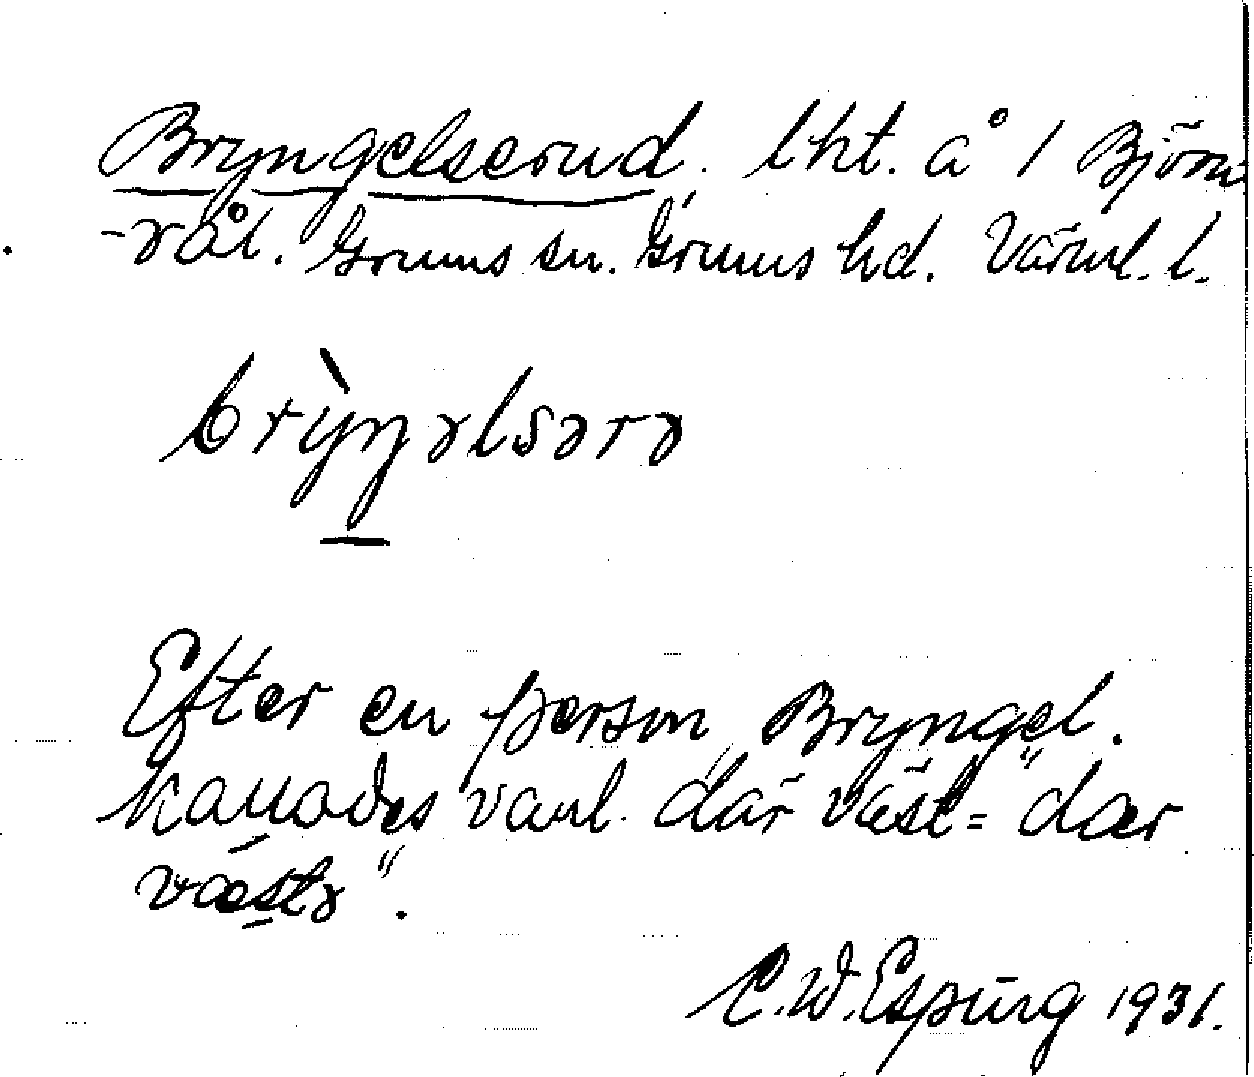 Bryngelserud. lht. å 1 Björn
-rål. Grums sn. Grums hd. Värml. l.
brỳŋəlsərə
Efter en person Bryngel.
Kallades vanl. där väst= "dær
væstə".
C. W. Esping 1931.